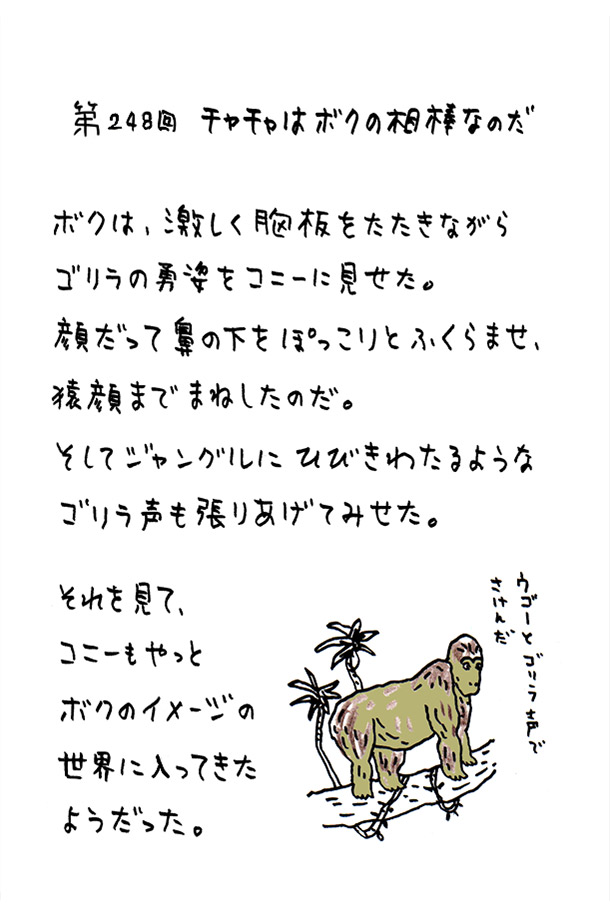 第248回 チャチャはボクの相棒なのだ
ボクは、激しく胸板をたたきながら
ゴリラの勇姿をコニーに見せた。
顔だって鼻の下をぽっこりとふくらませ、
猿顔までまねしたのだ。
そしてジャングルにひびきわたるような
ゴリラ声も張りあげてみせた。
それを見て、
コニーもやっと
ボクのイメージの
世界に入ってきた
ようだった。
ウゴーとゴリラ声で
さけんだ